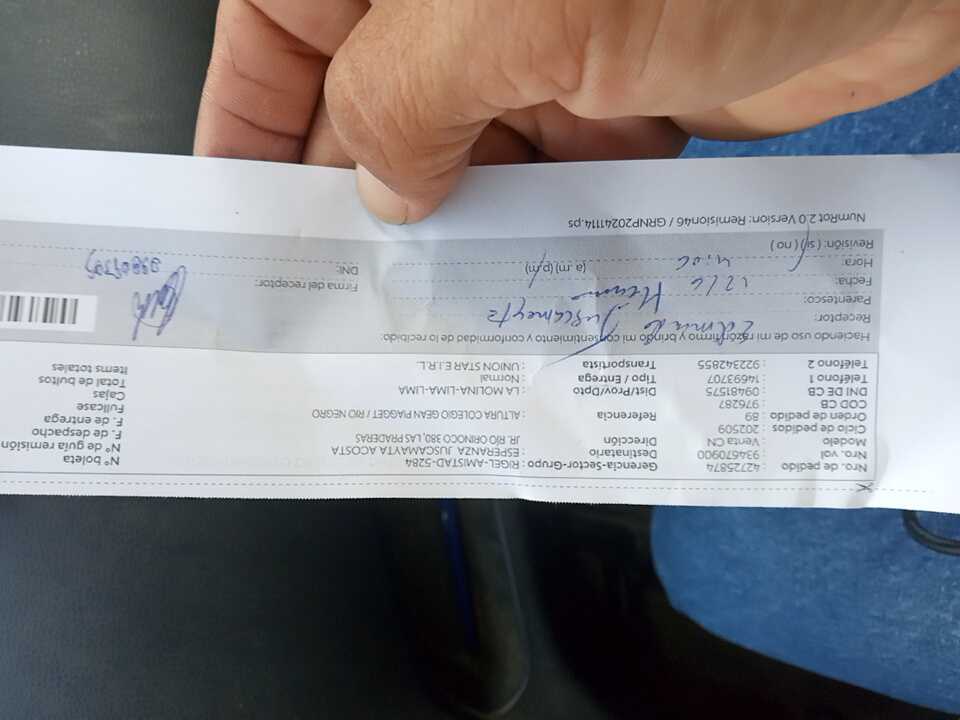 Nro. de pedido : 42725874 Gerencia-Sector-Grupo : RIGEL-AMISTAD-5284 N° boleta
Nro. vol : 934670900 Destinatario : ESPERANZA JUSCAMAYTA ACOSTA N° de guía remisión
Modelo : Venta CN Dirección : JR. RÍO ORINOCO 380, LAS PRADERAS F. de despacho
Ciclo de pedidos : 202509 F. de entrega
Orden de pedido : 89 Referencia : ALTURA COLEGIO GEAN PIAGGET / RIO NEGRO Fullcase
COD CB : 976287 Cajas
DNI DE CB : 09481575 Dist/Prov/Dpto : LA MOLINA-LIMA-LIMA Total de bultos
Teléfono 1 : 14693707 Tipo / Entrega : Normal Items totales
Teléfono 2 : 922342855 Transportista : UNION STAR E.I.R.L.
Haciendo uso de mi razón firmo y brindo mi consentimiento y conformidad de lo recibido
Receptor: Edmundo Juscamayta
Parentesco: Hermano Firma del receptor:
Fecha: 12/6 DNI:
Hora: 4:06 (a.m) (p.m)
Revisión: ( si ) ( no )
NumRot 2.0 Version: Remision46 / GRNP20241114.ps